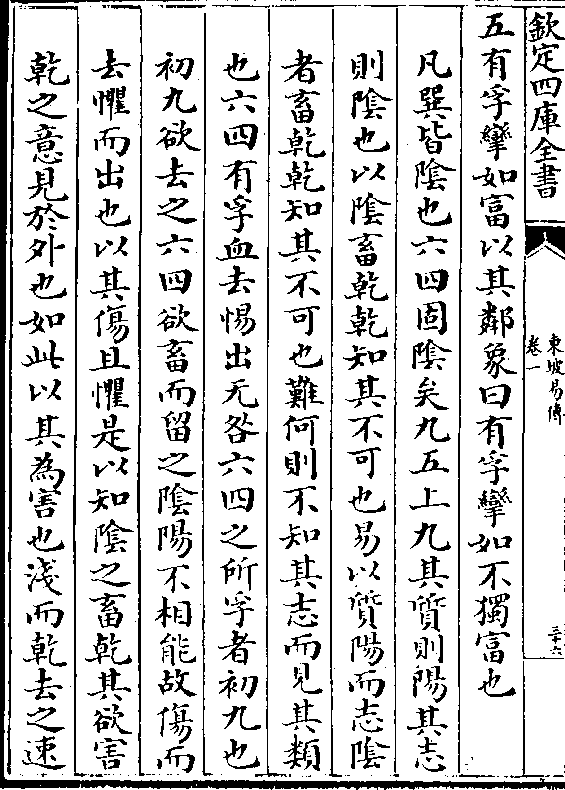 欽定四庫全書
東坡易傳
卷一
三十六
五有孚攣如富以其鄰象曰有孚攣如不獨富也
凡巽皆陰也六四固陰矣九五上九其質則陽其志
則陰也以陰畜乾乾知其不可也易以質陽而志陰
者畜乾乾知其不可也難何則不知其志而見其類
也六四有孚血去惕出无咎六四之所孚者初九也
初九欲去之六四欲畜而留之陰陽不相能故傷而
去懼而出也以其傷且懼是以知陰之畜乾其欲害
乾之意見於外也如此以其為害也淺而乾去之速